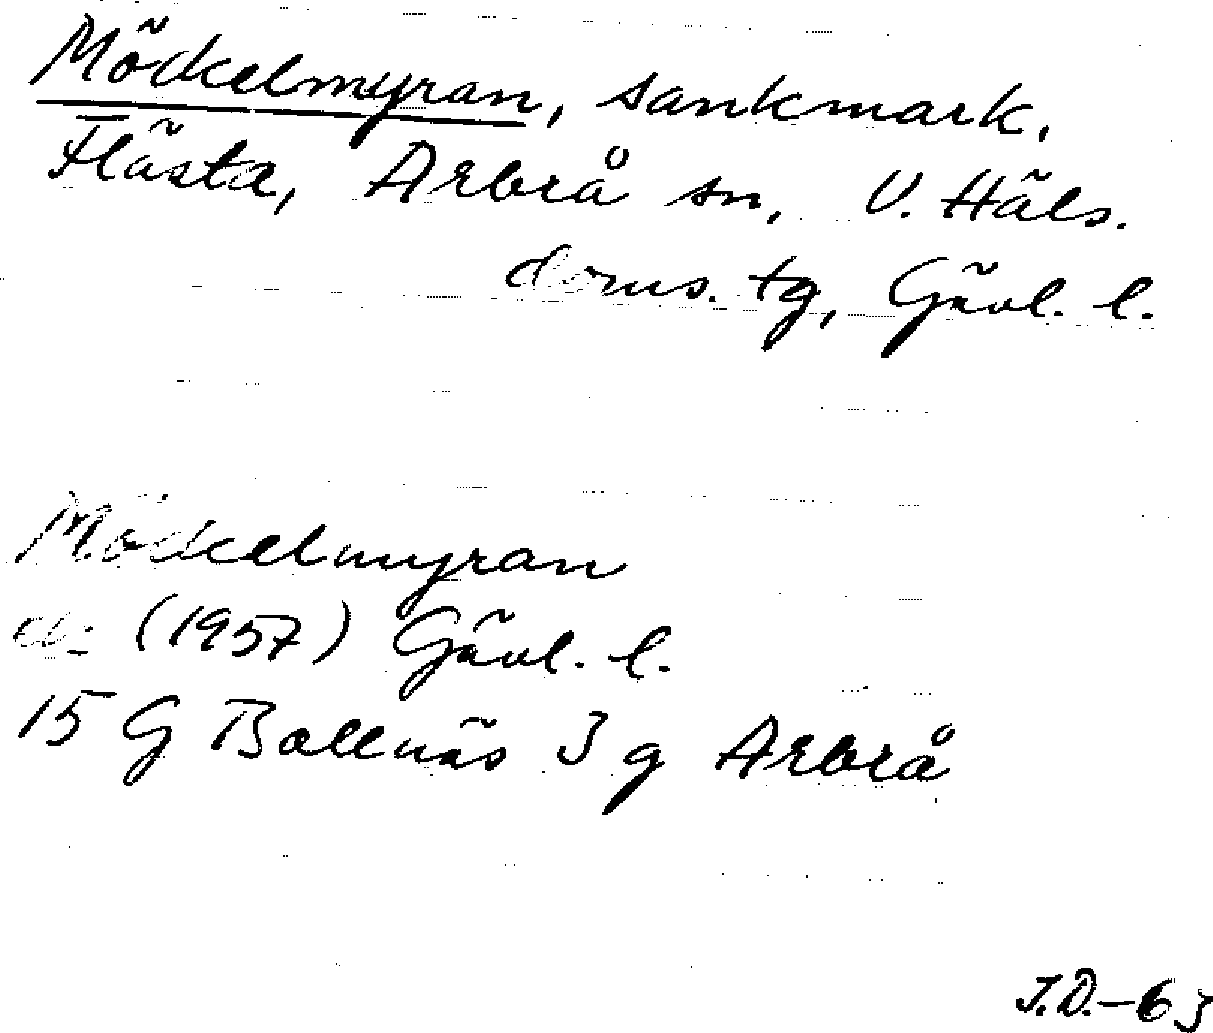 Möckelmyran, sankmark.
Flästa, Arbrå sn, V. Häls.
doms. tg, Gävl. l.
Möckelmyran
ek (1957) Gävl. l.
15 G Bollnäs 3 g Arbrå
J.D.-63